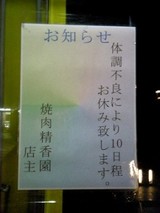 お知らせ
体調不良により10日程
お休み致します。
焼肉精香園
店主